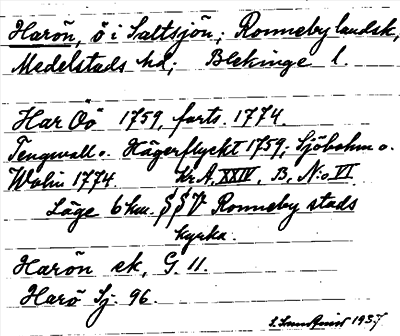 Harön, ö i Saltsjön; Ronneby landsk,
Medelstads hd; Blekinge l.
Har Öö 1759, forts. 1774.
Tengwall o. Hägerflyckt 1759; Sjöbohm o.
Wolin 1774. kr A, XXIV, B, N:o VI
Läge 6 km. SSV Ronneby stads
kyrka.
Harön ek, G. 11.
Harö Sj. 96.
1937